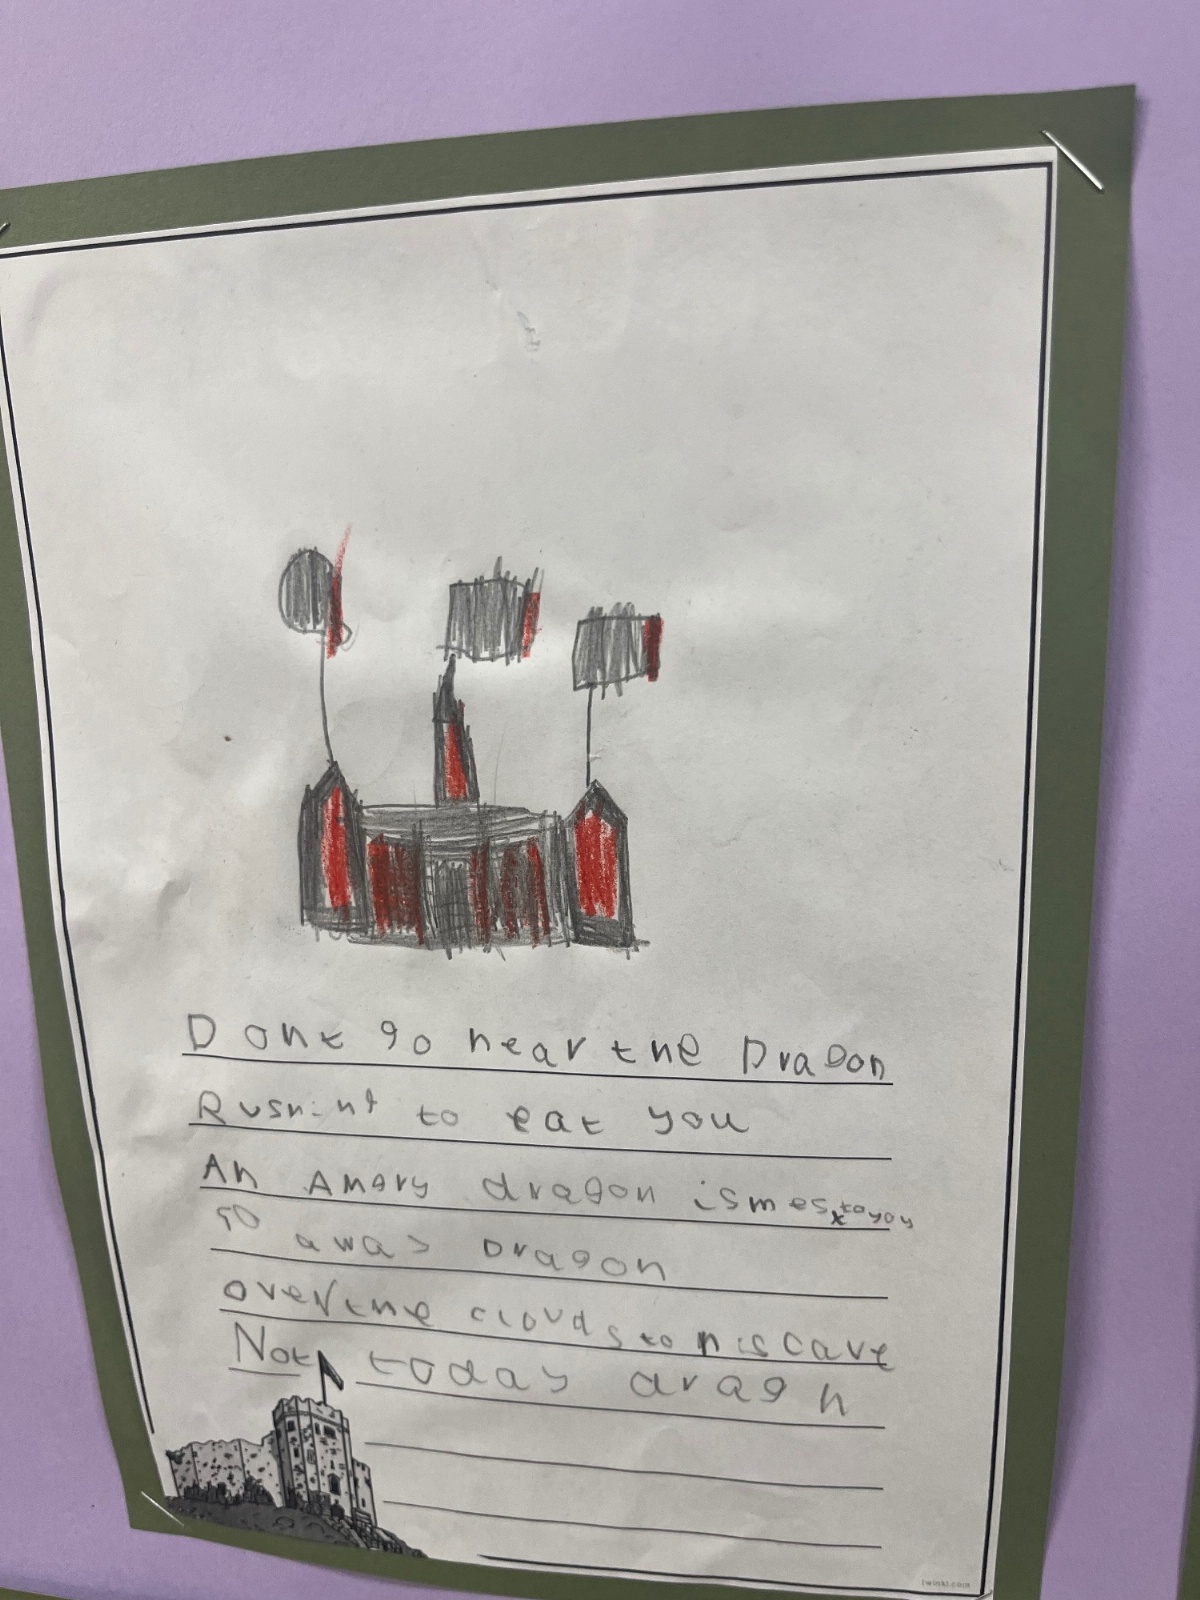 Dont go near the Dragon
Rushint to eat you
An Amgry dragon is mes to you
go away Dragon
over the clouds to his cave
Not today dragn
twinkl.com